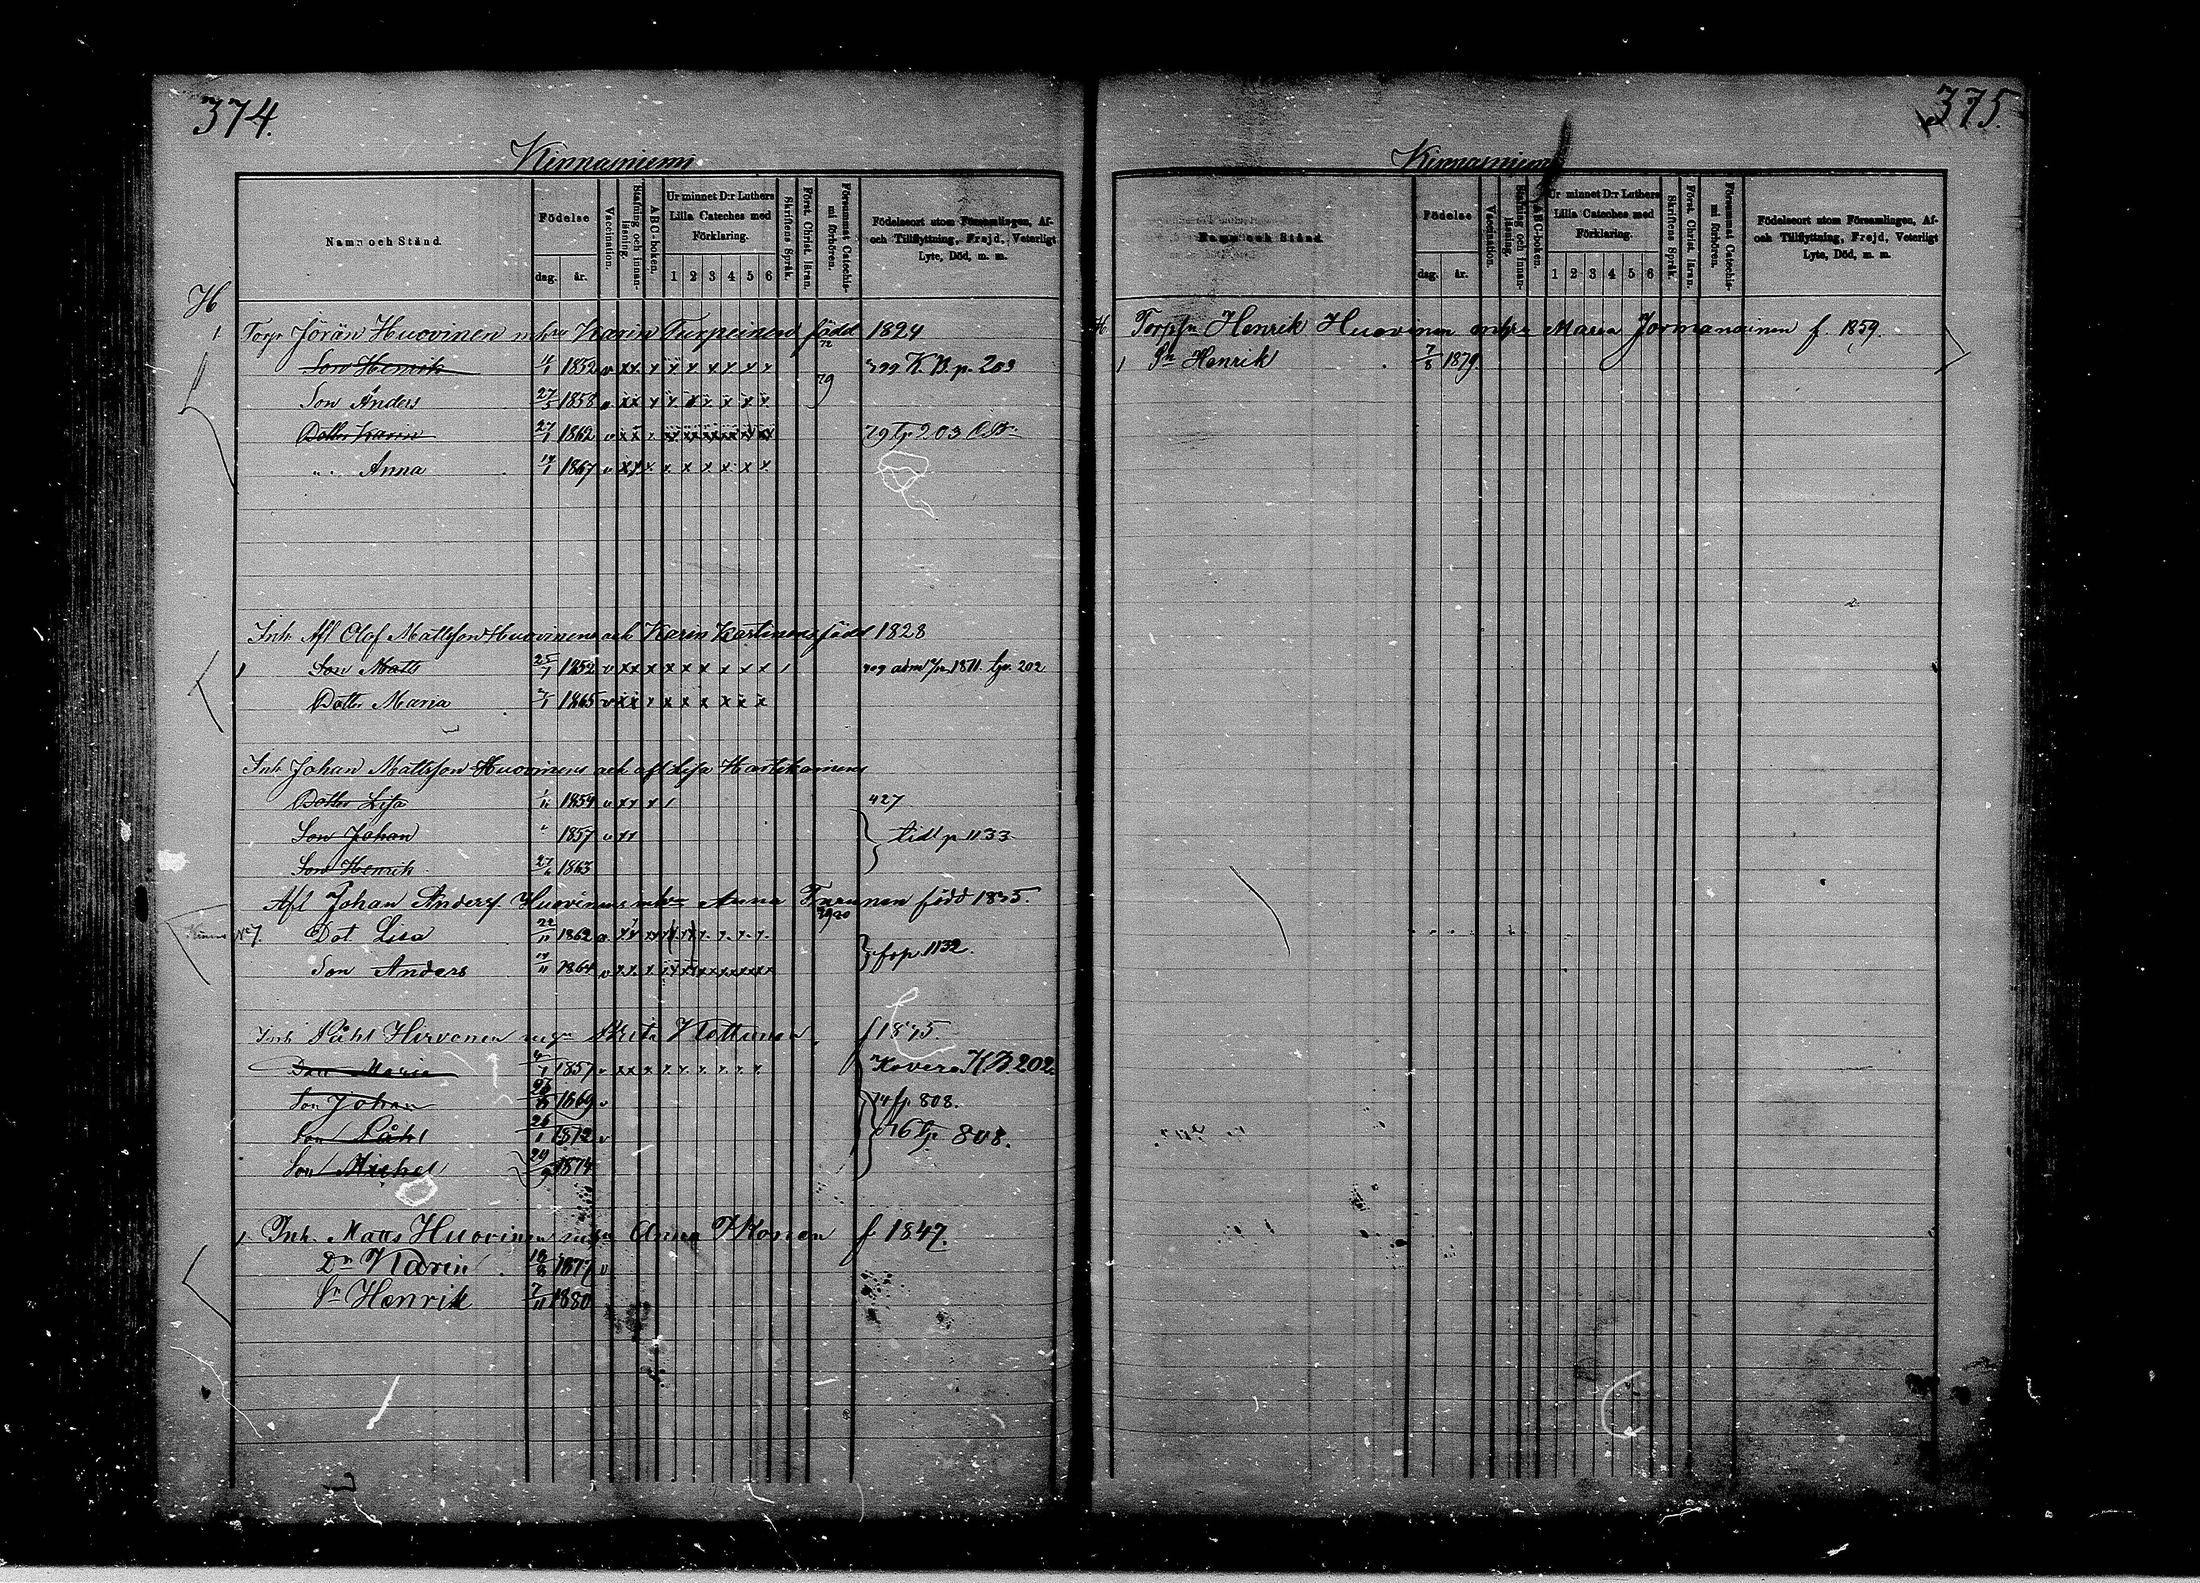 374.
Kinnasniemi
Namn och Stånd.
Födelse
dag. år.
Vaccination.
Stafning och innanläsning.
ABC-boken.
Ur minnet D:r Luthers Lilla Cateches med Förklaring.
1 2 3 4 5 6
Skriftens Språk.
Först. Christ. läran.
Försummat Catechismi förhören.
Födelseort utom Församlingen, Af- och Tillflyttning, Frejd, Veterligt Lyte, Död, m. m.
H
1 Torp. Jörän Huovinen m hu Karin Turpeinen född 1824
72
Son Henrik 4/1 1852 v xx x x x x x x x K. B. p. 203
Son Anders 27/5 1858 xx x x x x x x x 79
Dotter Karin 27/1 1862 v xx 79 tp 203
" Anna 14/1 1867 v xx x x x x x x x
Inh. Afl Olof Mattsson Huovinens och Karin född 1828
1 Son Matts 25/7 1852 v xx x x x x x x x 1 1871. tp. 202
Dotter Maria 2/1 1865 v xx x x x x x x x
Inh Johan Mattsson Huovinens och afl Lisa Hartikainens
Dotter Lisa 1/11 1854 v xx x 1 427
Son Johan " 1857 v xx tidl p 1133
Son Henrik 27/6 1863
Afl Johan Anders. Huovinens m hu Anna Turunen född 1835.
7920
No 7. Dot Lisa 22/11 1862
Son Anders 14/11 1864 v xx x fop 1132.
Inh Påhl Hirvonen Brita Kottunen f 1835.
Dotr Maria 4/1 1857 v xx x x x x x x x Kovero K B 202.
Son Johan 1869 v 74 fp 808.
Son Påhl 26/1 1872 v 76 tp 808.
Son Michel 29/9 1874
1 Inh. Matts Huovinen Anna Ikonen f 1847.
Dr Karin 18/8 1877 v
Sn Henrik 7/11 1880
375.
Kinnasniemi
Namn och Stånd.
Födelse
dag. år.
Vaccination.
Stafning och innanläsning.
ABC-boken.
Ur minnet D:r Luthers Lilla Cateches med Förklaring.
1 2 3 4 5 6
Skriftens Språk.
Först. Christ. läran.
Försummat Catechismi förhören.
Födelseort utom Församlingen, Af- och Tillflyttning, Frejd, Veterligt Lyte, Död, m. m.
H Torpsn Henrik Huovinen m hu Maria Jormanainen f. 1859.
1 Sn Henrik 7/8 1879.